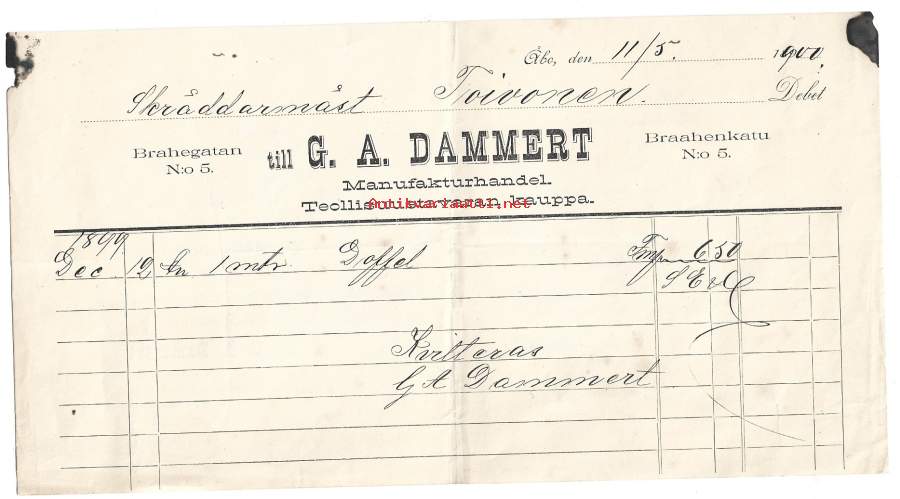 Åbo, den 11/5. 1900.
Skräddarmäst Toivonen. Debet
Brahegatan N:o 5.
till G. A. DAMMERT
Braahenkatu N:o 5.
Manufakturhandel.
Teollisuustavaran kauppa.
Antikvariaatti.net
1899
Dec 12 1 mtr Doffel Fmk 6 50
S E & O
Kvitteras
G A Dammert